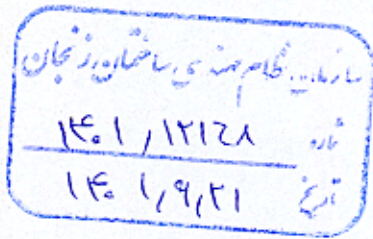 سازمان نظام مهندسی ساختمان زنجان
شماره ۱۴۰۱/۱۲۱۲۸
تاریخ ۱۴۰۱/۹/۲۱